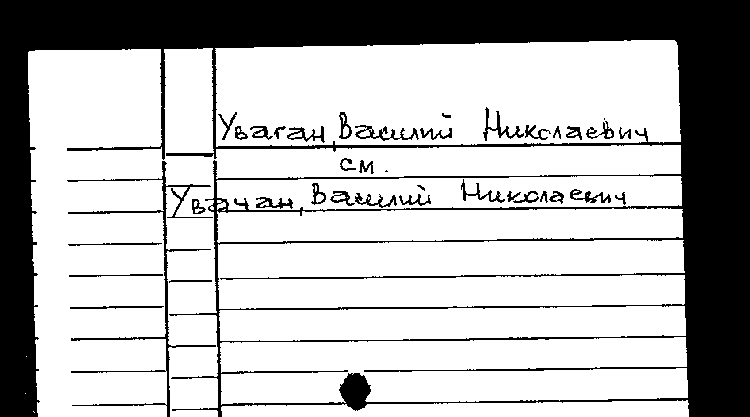 Уваган, Василий Николаевич
см.
Увачан, Василий Николаевич